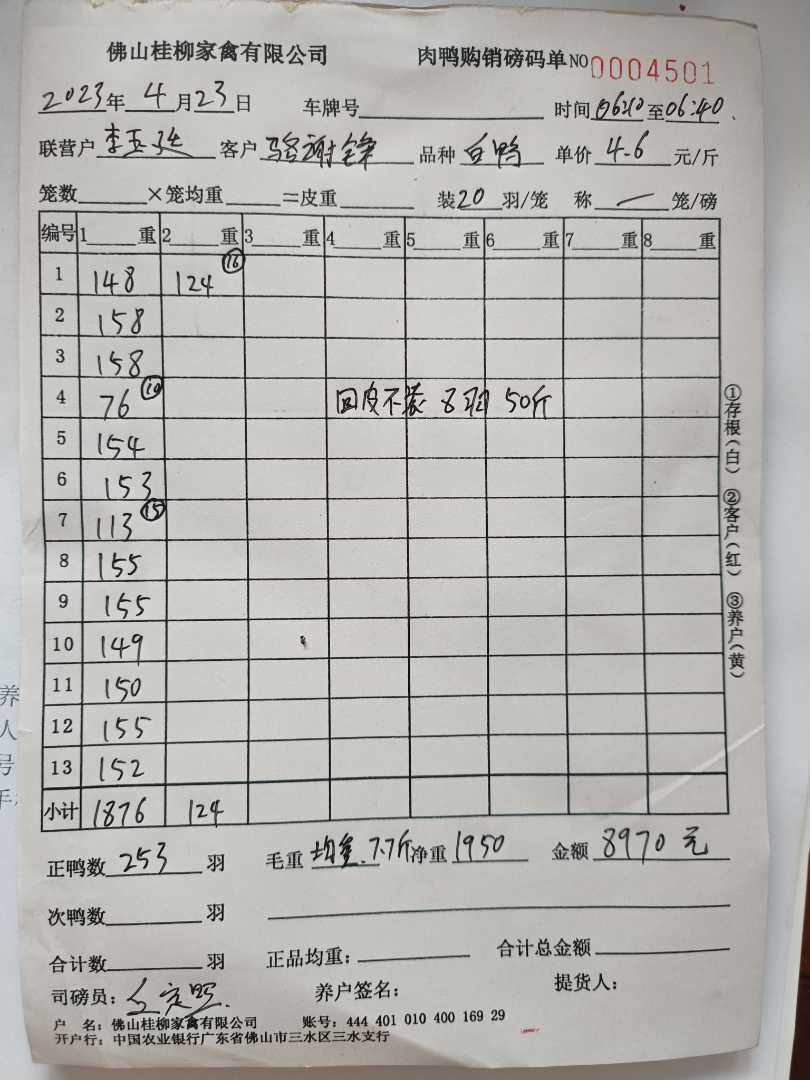 佛山桂柳家禽有限公司 肉鸭购销磅码单 NO 0004501
2023年 4月23日 车牌号 时间 0610 至 06:40
联营户 李玉廷 客户 骆谢锋 品种 白鸭 单价 4.6 元/斤
笼数 ×笼均重 =皮重 装20羽/笼 称 一 笼/磅
编号 1 重 2 重 3 重 4 重 5 重 6 重 7 重 8 重
1 148 124 ⑯
2 158
3 158
4 76 ⑩ 回皮不装 8羽 50斤
5 154
6 153
7 113 ⑮
8 155
9 155
10 149
11 150
12 155
13 152
小计 1876 124
正鸭数 253 羽 毛重 均重 7.7斤 净重 1950 金额 8970 元
次鸭数 羽
合计数 羽 正品均重: 合计总金额
司磅员: 养户签名: 提货人:
户 名: 佛山桂柳家禽有限公司 账号: 444 401 010 400 169 29
开户行: 中国农业银行广东省佛山市三水区三水支行
①存根(白) ②客户(红) ③养户(黄)
养
人
号
手